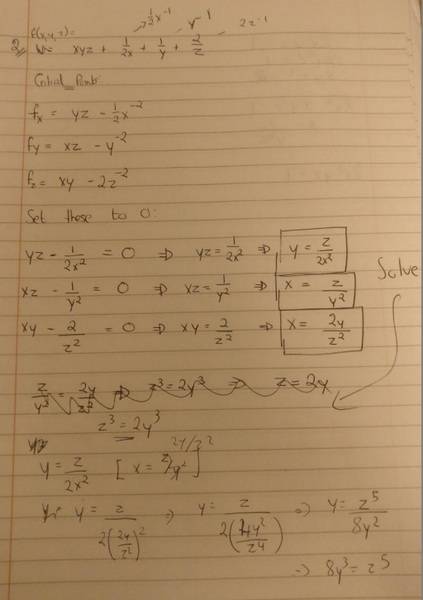 ½x⁻¹ y⁻¹ 2z⁻¹
f(x,y,z)=
2, xyz + 1/2x + 1/y + 2/z
Critical Points
fx = yz - ½x⁻²
fy = xz - y⁻²
fz = xy - 2z⁻²
Set these to 0:
yz - 1/2x² = 0 ⇒ yz = 1/2x² ⇒ y = z/2x²
Solve
xz - 1/y² = 0 ⇒ xz = 1/y² ⇒ x = z/y²
xy - 2/z² = 0 ⇒ xy = 2/z² ⇒ x = 2y/z²
z/y² = 2y/z² ⇒ z³ = 2y³ ⇒ z = 2y
z³ = 2y³
2y/z²
y = z/2x² [x = z/y²]
y = z/2(2y/z²)² ⇒ y = z/2(4y²/z⁴) ⇒ y = z⁵/8y²
⇒ 8y³ = z⁵